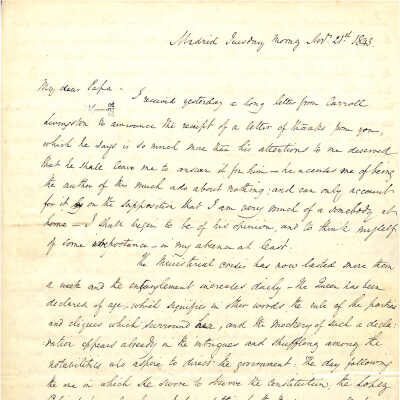 Madrid Tuesday Morng Novr. 21st 1843.
My dear Papa -
I received yesterday a long letter from Carroll
Livingston to announce the receipt of a letter of thanks from you,
which he says is so much more than his attentions to me deserved
that he shall leave me to answer it for him - he accuses me of being
the author of this much ado about nothing; and can only account
for it on the supposition that I am very much of a somebody at
home - I shall begin to be of his opinion, and to think myself
of some importance - in my absence at least.
The Ministerial crisis has now lasted more than
a week and the entanglement increases daily - The Queen has been
declared of age, which signifies in other words the rule of the parties
and cliques which surround her, and the mockery of such a decla-
ration appears already in the intrigues and shuffling among the
notabilities who aspire to direct the government. The day following
the one in which she swore to observe the constitution, the